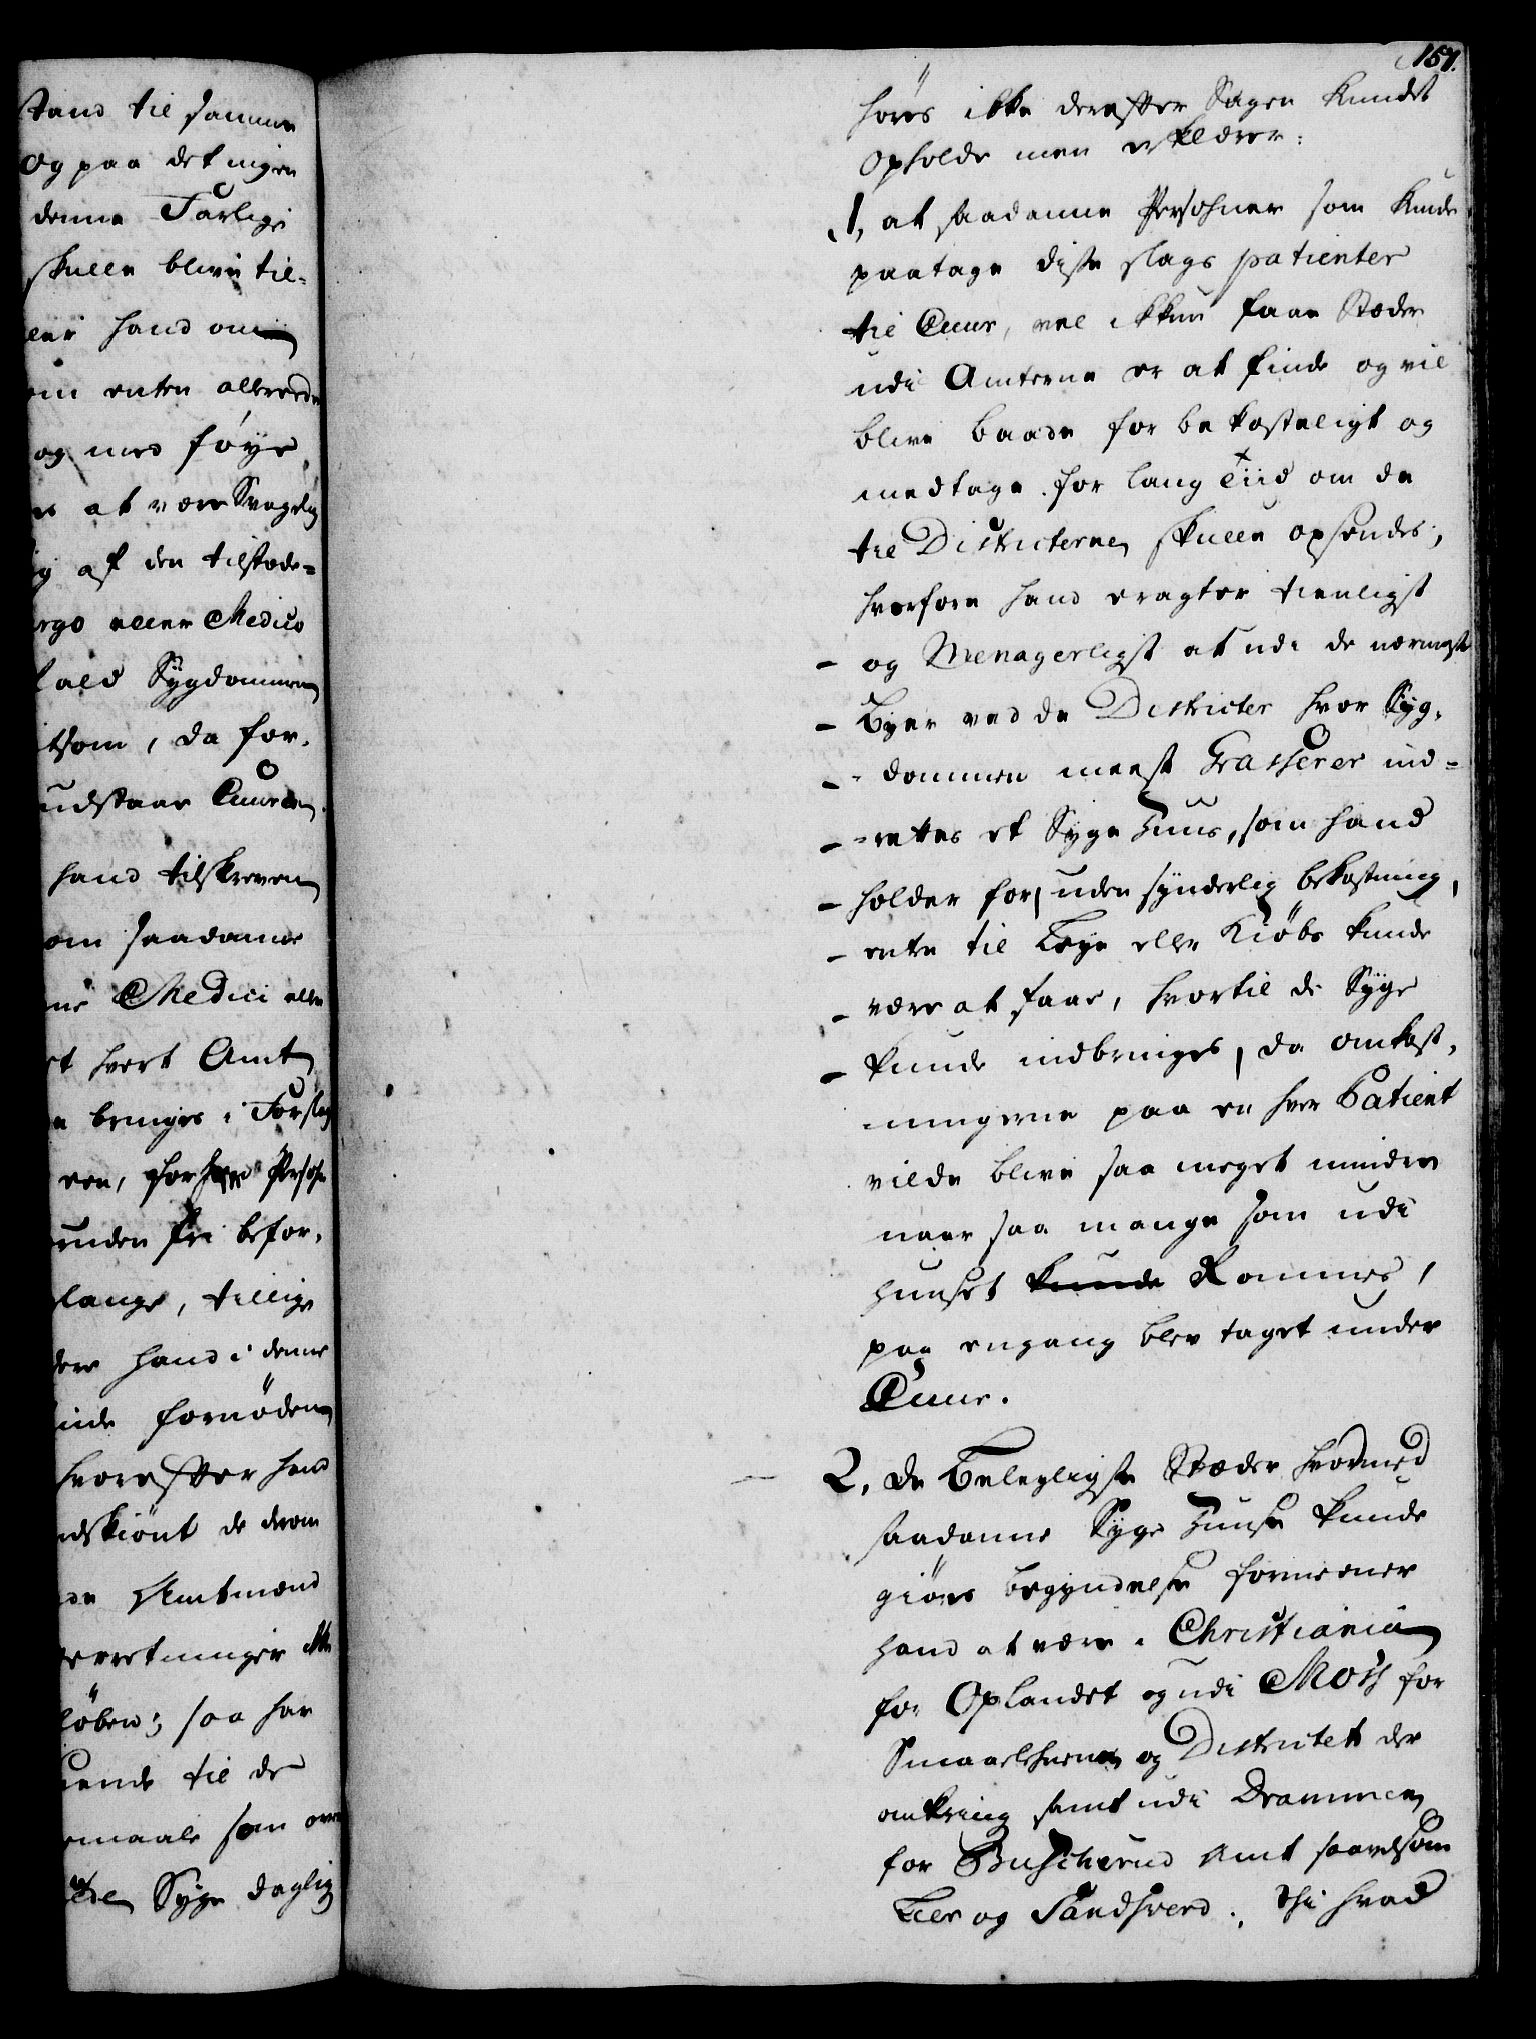 tand til samme
Og paa det ingen
denne Farlige
skulle blive til=
hand om
enten allereede
og med føye
at være Svagelig
af den tilstæde=
eller Medico
Sygdommen
som, da for=
udstaar Cuuren.
hand tilskreven
om saadanne
Medici eller
hvert Amt
bringes i Forslag
een, for hver Persohn
uden fri befor=
lange, tillige
hand i denne
fornøden
hvorefter hand
skiønt de derom
Amtmænd
erretninger
løben; saa har
til de
maale som
Syge daglig
157.
høres ikke derefter Sagen kundet
Opholde men erklærer:
1, at saadanne Persohner som kunde
paatage disse slags patienter
til Cuur, vel ikkun faae Stæder
udi Amterne er at finde og vil
blive baade for bekosteligt og
medtage for lang Tiid om de
til Districterne skulle opsendes,
hvorfore hand eragter tienligst
og Menagerligst at udi de nærmeste
Byer ved de Districter hvor Syg=
dommen meest Grasserer ind=
=rettes et Syge Huus, som hand
holder for, uden synderlig bekostning,
enten til Leye eller Kiøbs kunde
være at faae, hvortil de Syge
kunde indbringes, da omkost=
ningerne paa en hver Patient
vilde blive saa meget mindre
naar saa mange som udi
Huuset kunde Rommes,
paa engang blev taget under
Cuur.
2, de Beleyligste Stæder hvormed
saadanne Syge Huuse kunde
giøres begyndelse formeener
hand at være i Christiania
for Oplandet og udi Moss for
Smaalehnene og Districtet der
omkring samt udi Drammen
for Buscherud Amt saavelsom
Lier og Sandsverd. Thi hvad